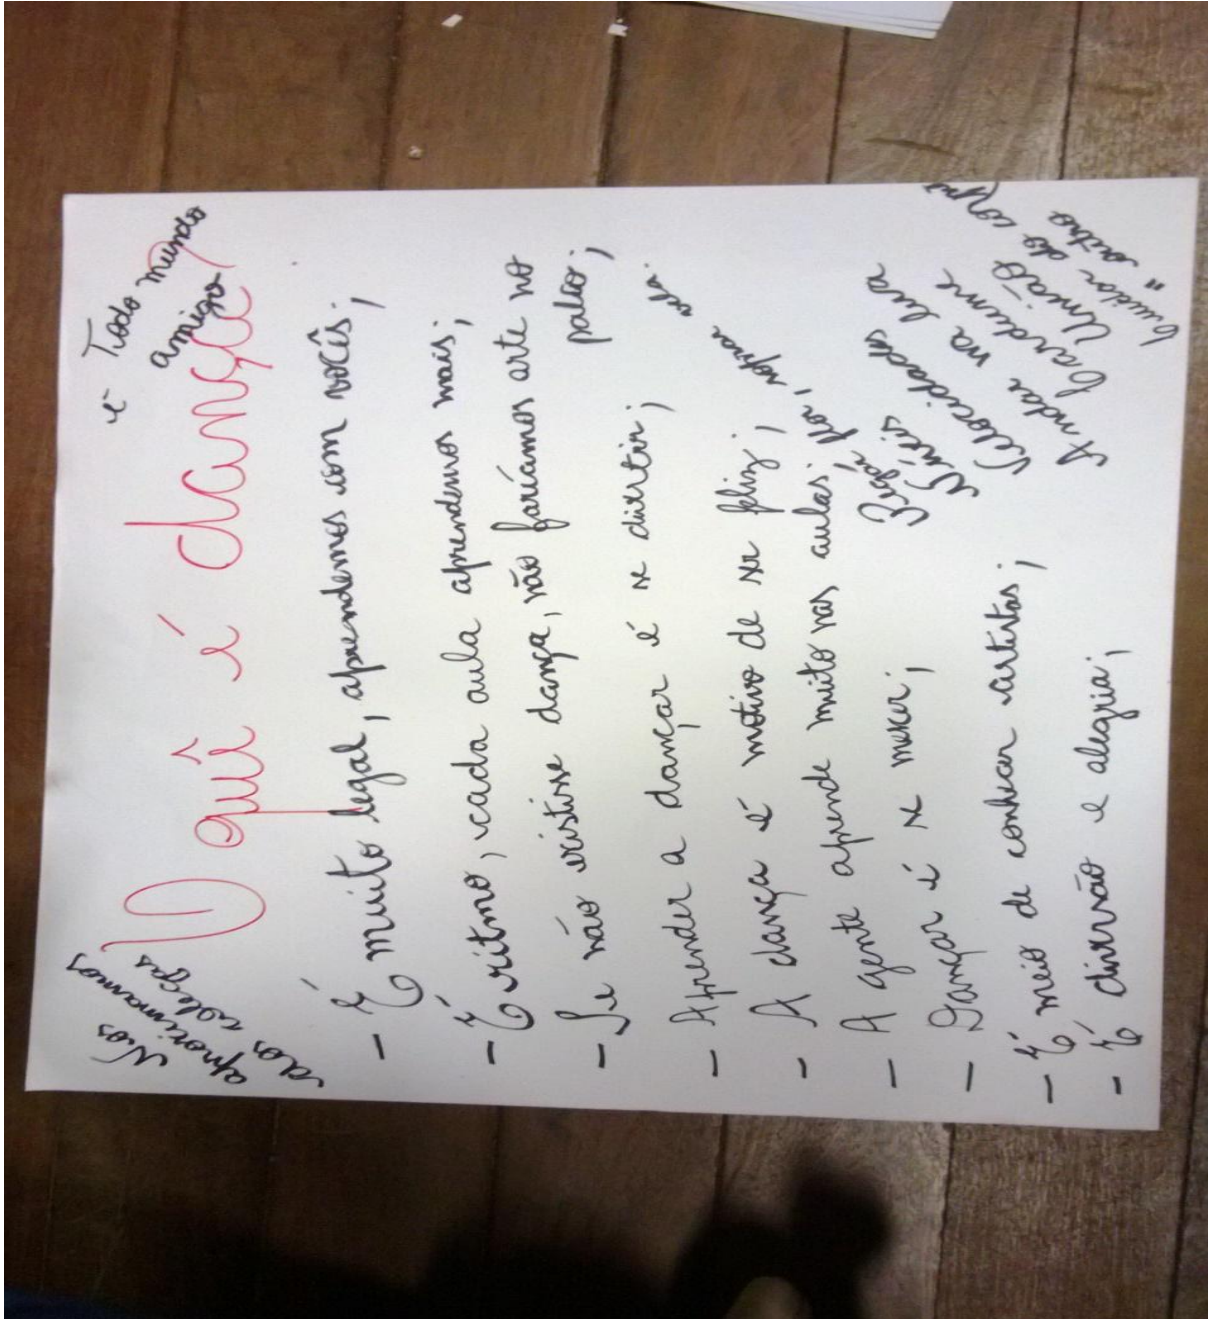 Nos
aproximamos
dos colegas
é Todo mundo
amigo
O quê é dança
- É muito legal, aprendemos com vocês;
- É ritmo, cada aula aprendemos mais;
- Se não existisse dança, não faríamos arte no
palco;
- Aprender a dançar é se divertir;
- A dança é motivo de ser feliz;
- A gente aprende muito nas aulas.
- Dançar é se mexer;
- É meio de conhecer artistas;
- É diversão e alegria;
flor,
Níveis
Velocidades
Andar na lua
Cardume
União
Cuidar do corpo
" outro